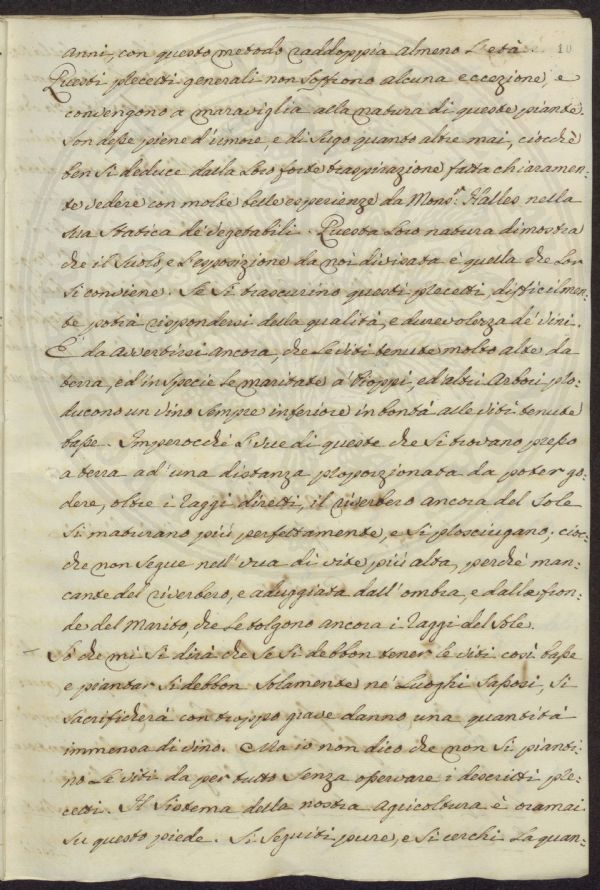 10
anni, con questo metodo raddoppia almeno l'età.
Questi precetti generali non soffrono alcuna eccezione, e
convengono a maraviglia alla natura di queste piante.
Son desse piene d'umore, e di sugo quanto altre mai, ciocchè
ben si deduce dalla loro forte traspirazione fatta chiaramen-
te vedere con molte belle esperienze da Monsr. Halles nella
sua statica de' vegetabili. Questa loro natura dimostra
che il suolo, e l'esposizione da noi divisata è quella che lor
si conviene. Se si trascurino questi precetti, difficilmen-
te potrà rispondersi della qualità, e durevolezza de' vini.
E' da avvertirsi ancora, che le viti tenute molto alte da
terra, ed in specie le maritate a' Pioppi, ed altri Arbori pro-
ducono un vino sempre inferiore in bontà alle viti tenute
basse. Imperocchè l'uve di queste che si trovano presso
a terra ad una distanza proporzionata da poter go-
dere, oltre i raggi diretti, il riverbero ancora del sole
si maturano più perfettamente, e si prosciugano; cioc-
chè non segue nell'uva di vite più alta, perchè man-
cante del riverbero, e aduggiata dall'ombra, e dalle fron-
de del Marito, che le tolgono ancora i raggi del sole.
So che mi si dirà che se si debbon tener le viti così basse
e piantar si debbon solamente ne' Luoghi sassosi, si
sacrificherà con troppo grave danno una quantità
immensa di vino. Ma io non dico che non si pianti-
no le viti da per tutto senza osservare i descritti pre-
cetti. Il sistema della nostra Agricoltura è oramai
su questo piede. Si seguiti pure, e si cerchi la quan-